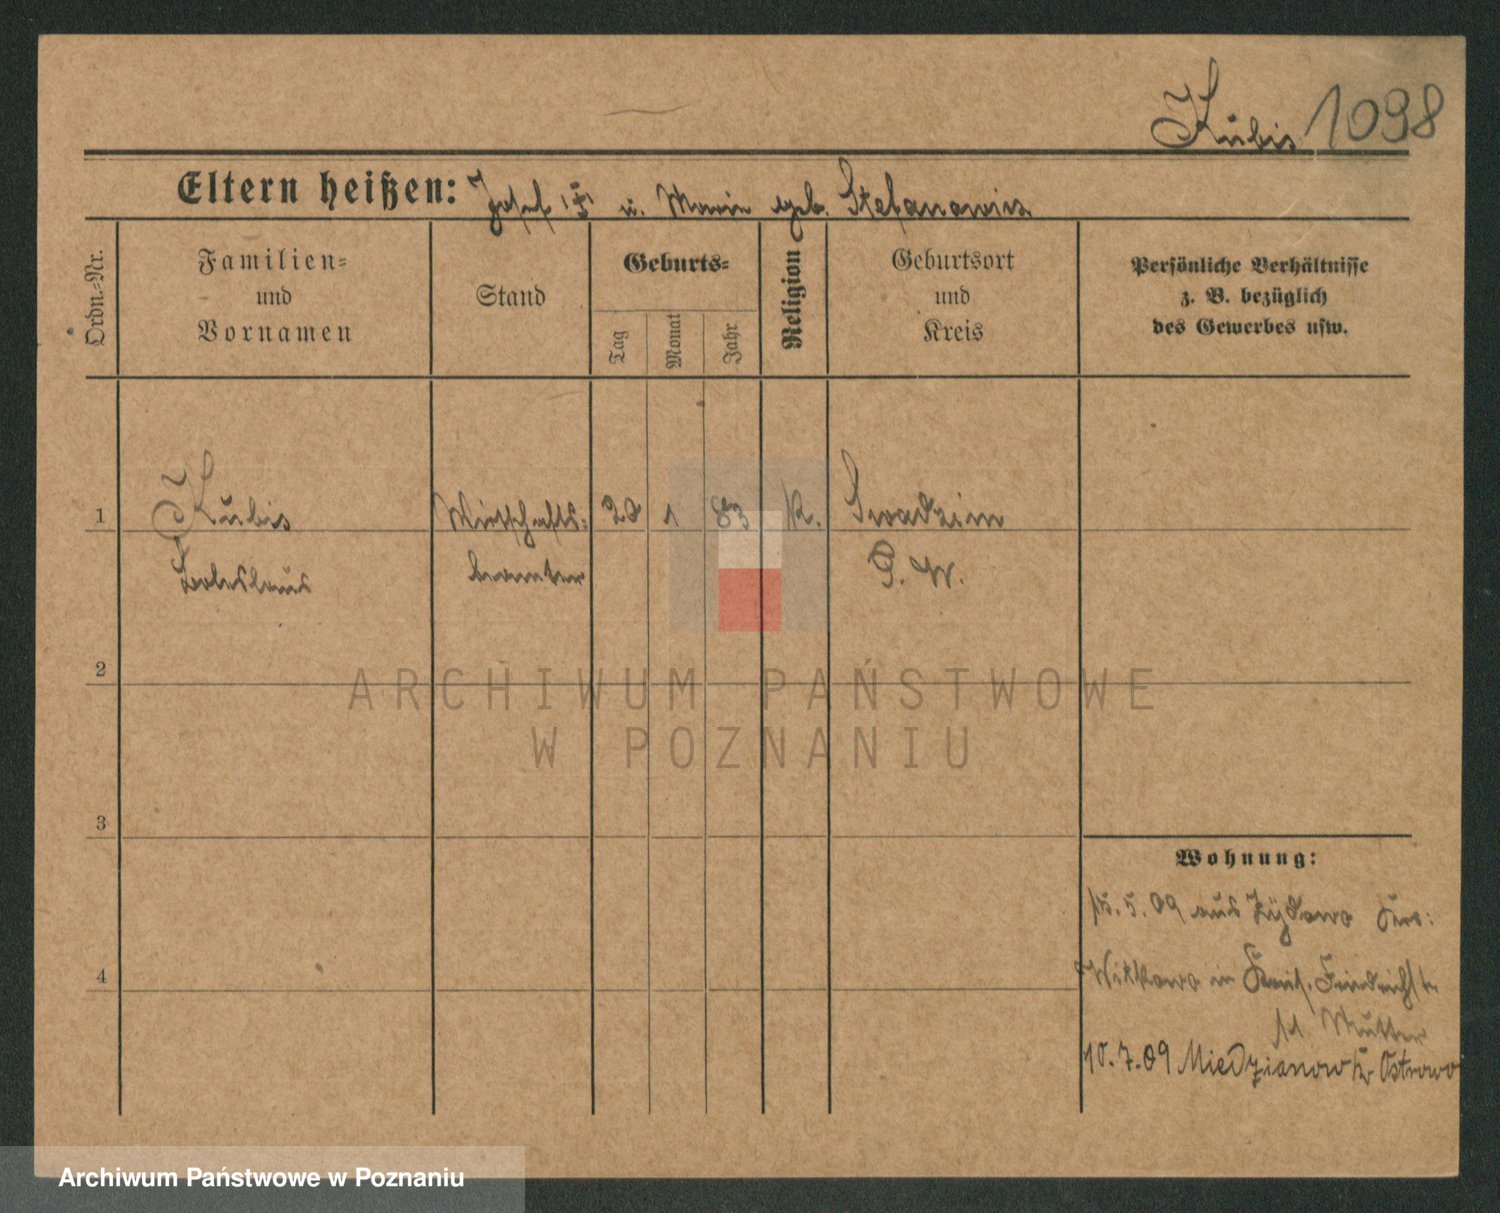 Kubis 1098
Eltern heißen: Josef (†) u. Marie geb. Stefanowicz
Ordn.-Nr.
Familien-
und
Vornamen
Stand
Geburts-
Tag
Monat
Jahr
Religion
Geburtsort
und
Kreis
Persönliche Verhältnisse
z. B. bezüglich
des Gewerbes usw.
1 Kubis Wirtschafts- 20 1 83 K. Swadzim
Boleslaus beamter P. W.
2
ARCHIWUM PAŃSTWOWE
W POZNANIU
3
Wohnung:
15. 5. 09 aus Żydowo
Witkowo in Friedrichstr.
Mutter
4
10. 7. 09 Miedzianow Ostrowo
Archiwum Państwowe w Poznaniu